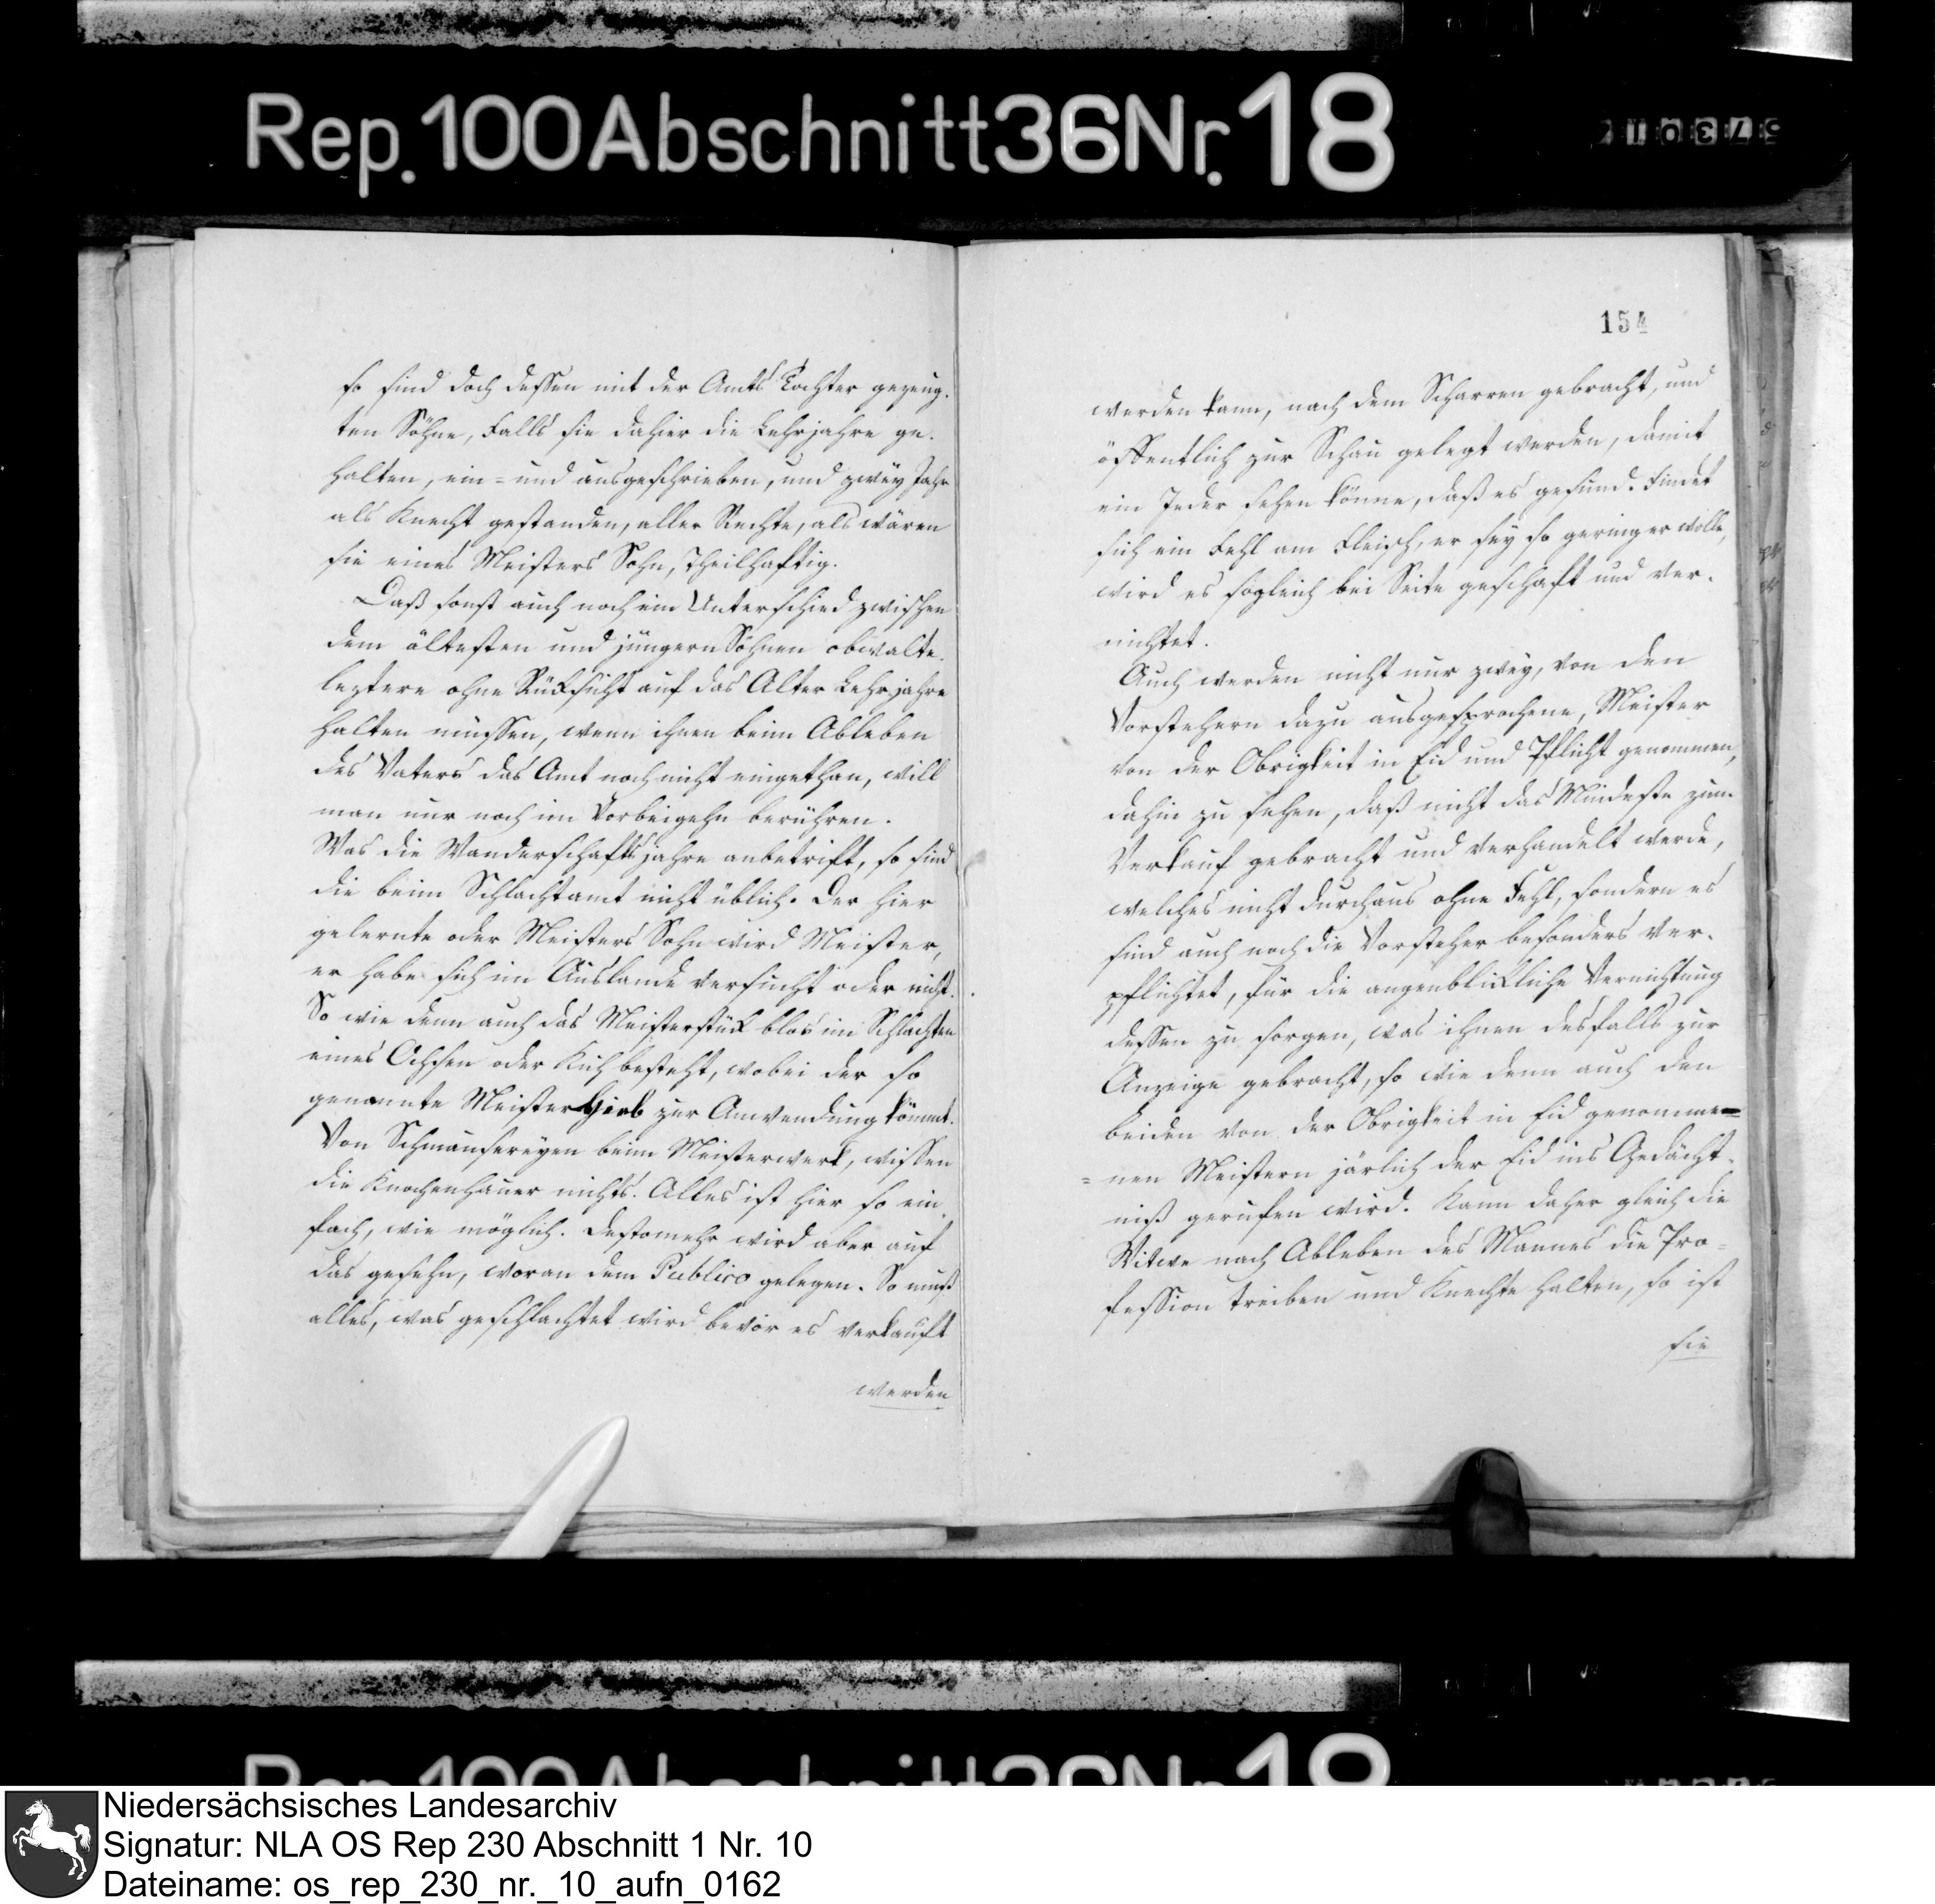 Rep. 100 Abschnitt 36 Nr. 18
so sind doch dessen mit der Amts Tochter gezeug-
ten Söhne, Falls sie dahier die Lehrjahre ge-
halten, ein- und ausgeschrieben, und zwey Jahr
als Knecht gestanden, aller Rechte, als wären
sie eines Meisters Sohn, theilhaftig.
Daß sonst auch noch ein Unterschied zwischen
dem ältesten und jüngern Söhnen obwalte,
leztere ohne Rüksicht auf das Alter Lehrjahre
halten müssen, wenn ihnen beim Ableben
des Vaters das Amt noch nicht eingethan, will
man nur noch im Vorbeigehn berühren.
Was die Wanderschaftsjahre anbetrift, so sind
die beim Schlachtamt nicht üblich. Der hier
gelernte oder Meisters Sohn wird Meister,
er habe sich im Auslande versucht oder nicht.
So wie denn auch das Meisterstük blos im Schlachten
eines Ochsen oder Kuh besteht, wobei der so
genannte Meister Hieb zur Anwendung kömmt.
Von Schmausereyen beim Meisterwerk, wissen
die Knochenhauer nichts. Alles ist hier so ein-
fach, wie möglich. Destomehr wird aber auf
das gesehn, woran dem Publico gelegen. So muß
alles, was geschlachtet wird bevor es verkauft
werden
154
werden kann, nach dem Scharren gebracht, und
öffentlich zur Schau gelegt werden, damit
ein Jeder sehen könne, daß es gesund. Findet
sich ein Fehl am Fleisch, er sey so gering er wolle,
wird es sogleich bei Seite geschaft und ver-
nichtet.
Auch werden nicht nur zwey, von den
Vorstehern dazu ausgesprochene, Meister
von der Obrigkeit in Eid und Pflicht genommen,
dahin zu sehen, daß nicht das Mindeste zum
Verkauf gebracht und verhandelt werde,
welches nicht durchaus ohne Fehl, sondern es
sind auch noch die Vorsteher besonders ver-
pflichtet, für die augenblikliche Vernichtung
dessen zu sorgen, was ihnen desfalls zur
Anzeige gebracht, so wie denn auch den
beiden von der Obrigkeit in Eid genomme-
=nen Meistern järlich der Eid ins Gedächt-
niß gerufen wird. Kann daher gleich die
Witwe nach Ableben des Mannes die Pro-
fession treiben und Knechte halten, so ist
sie
Niedersächsisches Landesarchiv
Signatur: NLA OS Rep 230 Abschnitt 1 Nr. 10
Dateiname: os_rep_230_nr._10_aufn_0162